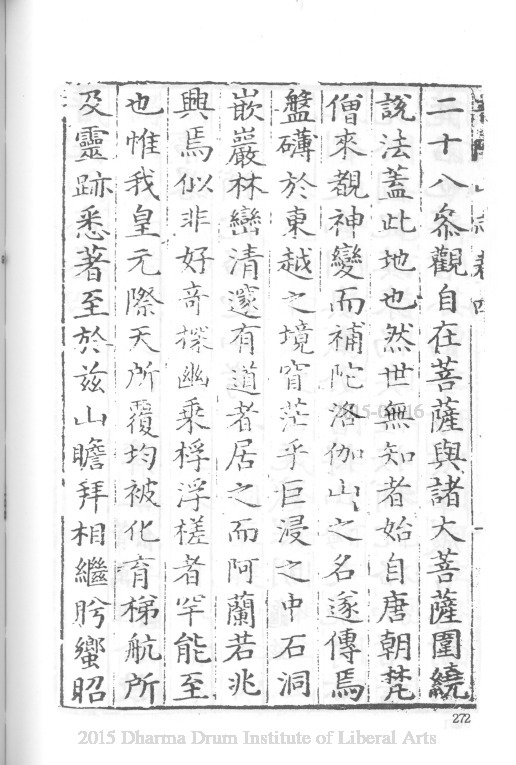 二十八叅觀自在菩薩與諸大菩薩圍繞
說法蓋此地也然世無知者始自唐朝梵
僧來覩神變而補陀洛伽山之名遂傳焉
盤礴於東越之境窅茫乎巨浸之中石洞
嵌巖林巒清邃有道者居之而阿蘭若兆
興焉似非好竒探幽乘桴浮槎者罕能至
也惟我皇元際天所覆均被化育梯航所
及靈跡悉著至於兹山瞻拜相繼肸蠁昭
272
2015 Dharma Drum Institute of Liberal Arts